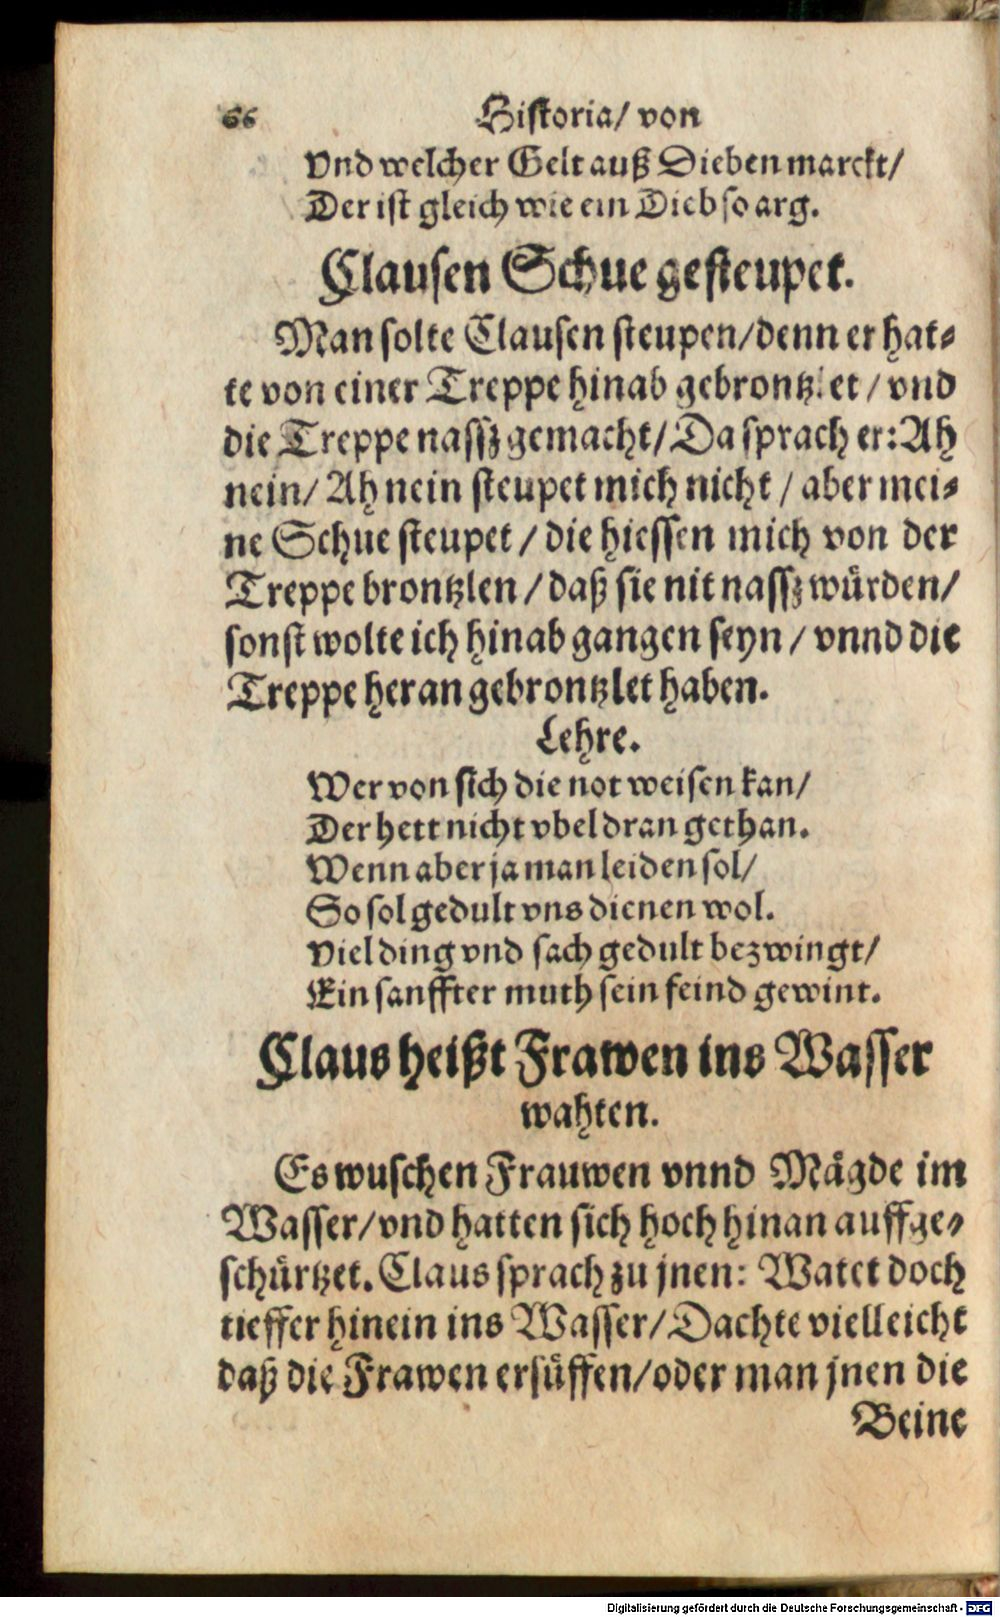 66 Historia/ von
Vnd welcher Gelt auß Dieben marckt/
Der ist gleich wie ein Dieb so arg.
Clausen Schue gesteupet.
Man solte Clausen steupen/denn er hat-
te von einer Treppe hinab gebrontzlet/ vnd
die Treppe nassz gemacht/Da sprach er:Ah
nein/ Ah nein steupet mich nicht/ aber mei-
ne Schue steupet/ die hiessen mich von der
Treppe brontzlen/daß sie nit nassz würden/
sonst wolte ich hinab gangen seyn/ vnnd die
Treppe heran gebrontzlet haben.
Lehre.
Wer von sich die not weisen kan/
Der hett nicht vbel dran gethan.
Wenn aber ja man leiden sol/
So sol gedult vns dienen wol.
Viel ding vnd sach gedult bezwingt/
Ein sanffter muth sein feind gewint.
Claus heißt Frawen ins Wasser
wahten.
Es wuschen Frauwen vnnd Mägde im
Wasser/vnd hatten sich hoch hinan auffge-
schürtzet. Claus sprach zu jnen: Watet doch
tieffer hinein ins Wasser/Dachte vielleicht
daß die Frawen ersüffen/oder man jnen die
Beine
Digitalisierung gefördert durch die Deutsche Forschungsgemeinschaft - DFG